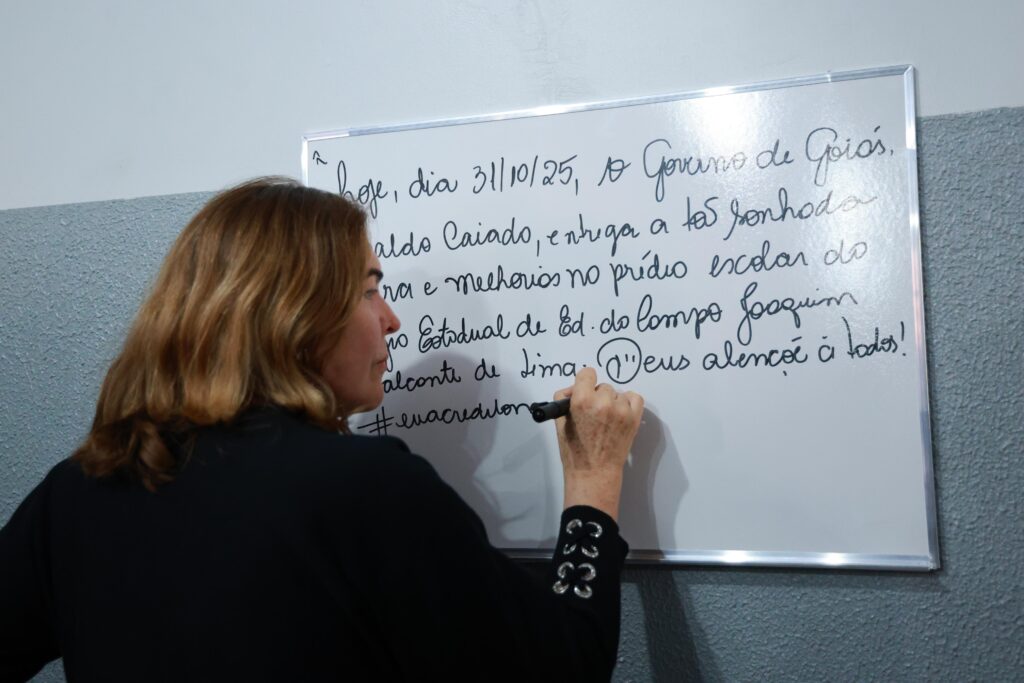 hoje, dia 31/10/25, o Governo de Goiás,
aldo Caiado, entrega a tão sonhada
ra e melhorias no prédio escolar do
gio Estadual de Ed. do Campo Joaquim
alcante de Lima. Deus abençoê à todos!
#euacredito